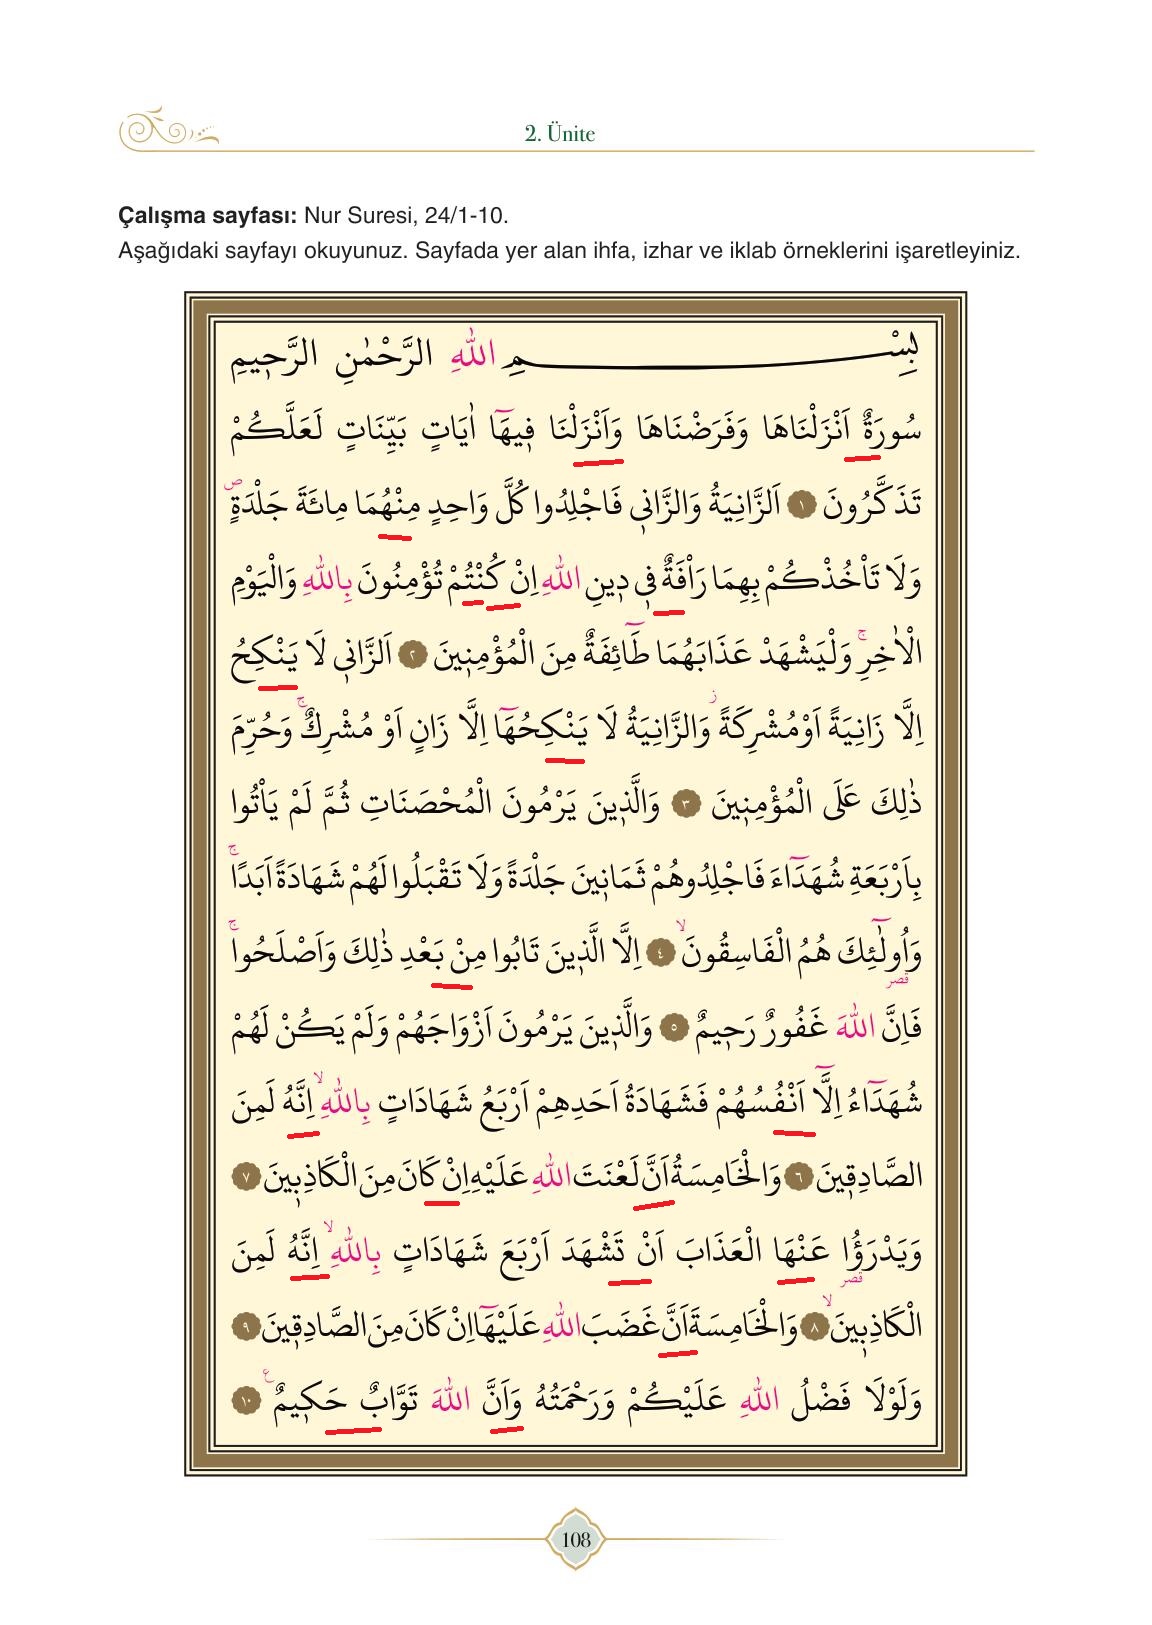 2. Ünite
Çalışma sayfası: Nur Suresi, 24/1-10.
Aşağıdaki sayfayı okuyunuz. Sayfada yer alan ihfa, izhar ve iklab örneklerini işaretleyiniz.
بِسْمِ اللّٰهِ الرَّحْمٰنِ الرَّح۪يمِ
سُورَةٌ اَنْزَلْنَاهَا وَفَرَضْنَاهَا وَاَنْزَلْنَا ف۪يهَٓا اٰيَاتٍ بَيِّنَاتٍ لَعَلَّكُمْ
تَذَكَّرُونَ ١ اَلزَّانِيَةُ وَالزَّان۪ي فَاجْلِدُوا كُلَّ وَاحِدٍ مِنْهُمَا مِائَةَ جَلْدَةٍۖ
وَلَا تَاْخُذْكُمْ بِهِمَا رَاْفَةٌ ف۪ي د۪ينِ اللّٰهِ اِنْ كُنْتُمْ تُؤْمِنُونَ بِاللّٰهِ وَالْيَوْمِ
الْاٰخِرِۚ وَلْيَشْهَدْ عَذَابَهُمَا طَٓائِفَةٌ مِنَ الْمُؤْمِن۪ينَ ٢ اَلزَّان۪ي لَا يَنْكِحُ
اِلَّا زَانِيَةً اَوْ مُشْرِكَةًؗ وَالزَّانِيَةُ لَا يَنْكِحُهَٓا اِلَّا زَانٍ اَوْ مُشْرِكٌۚ وَحُرِّمَ
ذٰلِكَ عَلَى الْمُؤْمِن۪ينَ ٣ وَالَّذ۪ينَ يَرْمُونَ الْمُحْصَنَاتِ ثُمَّ لَمْ يَاْتُوا
بِاَرْبَعَةِ شُهَدَٓاءَ فَاجْلِدُوهُمْ ثَمَان۪ينَ جَلْدَةً وَلَا تَقْبَلُوا لَهُمْ شَهَادَةً اَبَدًاۚ
وَاُو۬لٰٓئِكَ هُمُ الْفَاسِقُونَۙ ٤ اِلَّا الَّذ۪ينَ تَابُوا مِنْ بَعْدِ ذٰلِكَ وَاَصْلَحُواۚ
قصر
فَاِنَّ اللّٰهَ غَفُورٌ رَح۪يمٌ ٥ وَالَّذ۪ينَ يَرْمُونَ اَزْوَاجَهُمْ وَلَمْ يَكُنْ لَهُمْ
شُهَدَٓاءُ اِلَّٓا اَنْفُسُهُمْ فَشَهَادَةُ اَحَدِهِمْ اَرْبَعُ شَهَادَاتٍ بِاللّٰهِۙ اِنَّهُ لَمِنَ
الصَّادِق۪ينَ ٦ وَالْخَامِسَةُ اَنَّ لَعْنَتَ اللّٰهِ عَلَيْهِ اِنْ كَانَ مِنَ الْكَاذِب۪ينَ ٧
وَيَدْرَؤُا عَنْهَا الْعَذَابَ اَنْ تَشْهَدَ اَرْبَعَ شَهَادَاتٍ بِاللّٰهِۙ اِنَّهُ لَمِنَ
قصر
الْكَاذِب۪ينَۙ ٨ وَالْخَامِسَةَ اَنَّ غَضَبَ اللّٰهِ عَلَيْهَٓا اِنْ كَانَ مِنَ الصَّادِق۪ينَ ٩
وَلَوْلَا فَضْلُ اللّٰهِ عَلَيْكُمْ وَرَحْمَتُهُ وَاَنَّ اللّٰهَ تَوَّابٌ حَك۪يمٌ ع ١٠
108